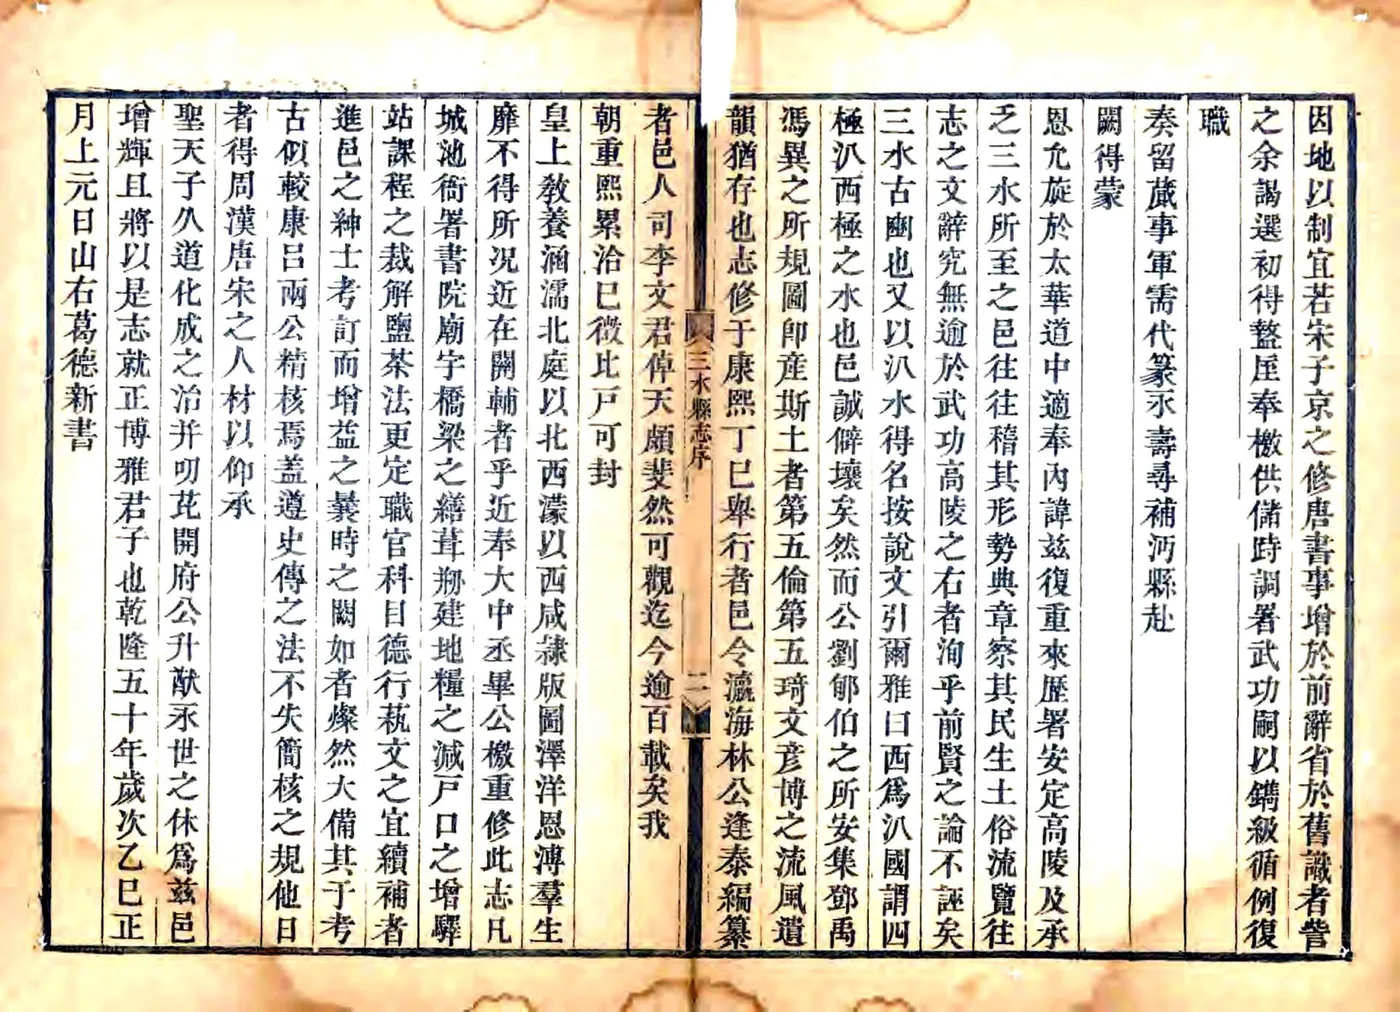 因地以制宜若宋子京之修唐書事增於前辭省於舊識者訾
之余謁選初得盩厔奉檄供儲時調署武功嗣以鐫級循例復
職
奏留蕆事軍需代篆永壽尋補沔縣赴
闕得蒙
恩允旋於太華道中適奉內諱兹復重來歷署安定高陵及承
乏三水所至之邑往往稽其形勢典章察其民生土俗流覽往
志之文辭究無逾於武功高陵之右者洵乎前賢之論不誣矣
三水古豳也又以汃水得名按說文引爾雅曰西爲汃國謂四
極汃西極之水也邑誠僻壤矣然而公劉郇伯之所安集鄧禹
馮異之所規圖卽産斯土者第五倫第五琦文彦博之流風遺
韻猶存也志修于康熙丁巳舉行者邑令瀛海林公逢泰編纂
三水縣志序
二
者邑人司李文君倬天頗斐然可觀迄今逾百載矣我
朝重熙累洽巳徵比戸可封
皇上敎養涵濡北庭以北西濛以西咸隷版圖澤洋恩溥羣生
靡不得所况近在關輔者乎近奉大中丞畢公檄重修此志凡
城池衙署書院廟宇橋梁之繕葺剏建地糧之减戸口之增驛
站課程之裁解鹽茶法更定職官科目德行蓺文之宜續補者
進邑之紳士考訂而增益之曩時之闕如者燦然大備其于考
古似較康呂兩公精核焉盖遵史傳之法不失簡核之規他日
者得周漢唐宋之人材以仰承
聖天子久道化成之治并叨芘開府公升猷永世之休爲兹邑
增輝且將以是志就正博雅君子也乾隆五十年歲次乙巳正
月上元日山右葛德新書